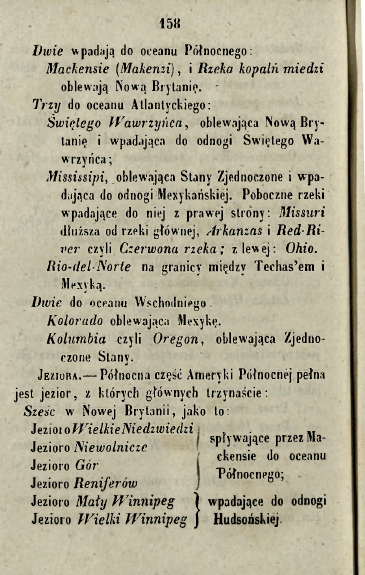 158
Dwie wpadają do oceanu Północnego:
Mackensie (Makenzi), i Rzeka kopalń miedzi
oblewają Nową Brytanię.
Trzy do oceanu Atlantyckiego:
Swiętego Wawrzyńca, oblewająca Nową Bry-
tanię i wpadająca do odnogi Swiętego Wa-
wrzyńca;
Mississipi, oblewająca Stany Zjednoczone i wpa-
dająca do odnogi Mexykańskiej. Poboczne rzeki
wpadające do niej z prawej strony: Missuri
dłuższa od rzeki głównej, Arkanzas i Red-Ri-
ver czyli Czerwona rzeka; z lewej: Ohio.
Rio-del-Norte na granicy między Techas'em i
Mexyką.
Dwie do oceanu Wschodniego
Kolorado oblewająca Mexykę.
Kolumbia czyli Oregon, oblewająca Zjedno-
czone Stany.
JEZIORA.— Północna część Ameryki Północnej pełna
jest jezior, z których głównych trzynaście:
Sześć w Nowej Brytanii, jako to:
Jezioro Wielkie Niedzwiedzi
Jezioro Niewolnicze
Jezioro Gór
Jezioro Reniferów
spływające przez Ma-
ckensie do oceanu
Północnego;
Jezioro Mały Winnipeg
Jezioro Wielki Winnipeg
wpadające do odnogi
Hudsońskiej.